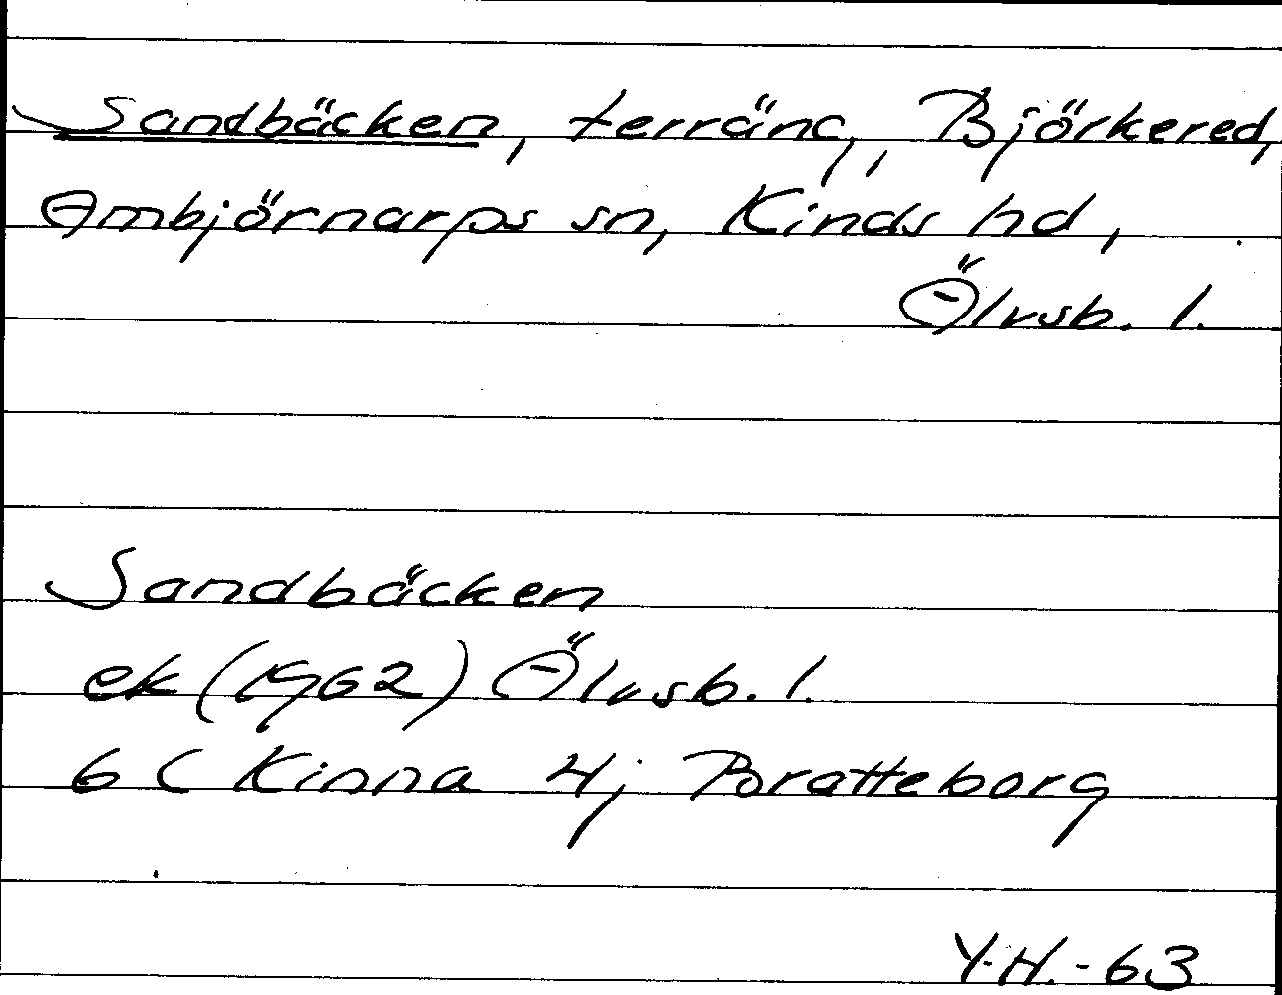 Sandbäcken, terräng, Björkered,
Ambjörnarps sn, Kinds hd,
Älvsb. l.
Sandbäcken
ek (1962) Älvsb. l.
6 C Kinna 4j Bratteborg
Y.H.-63